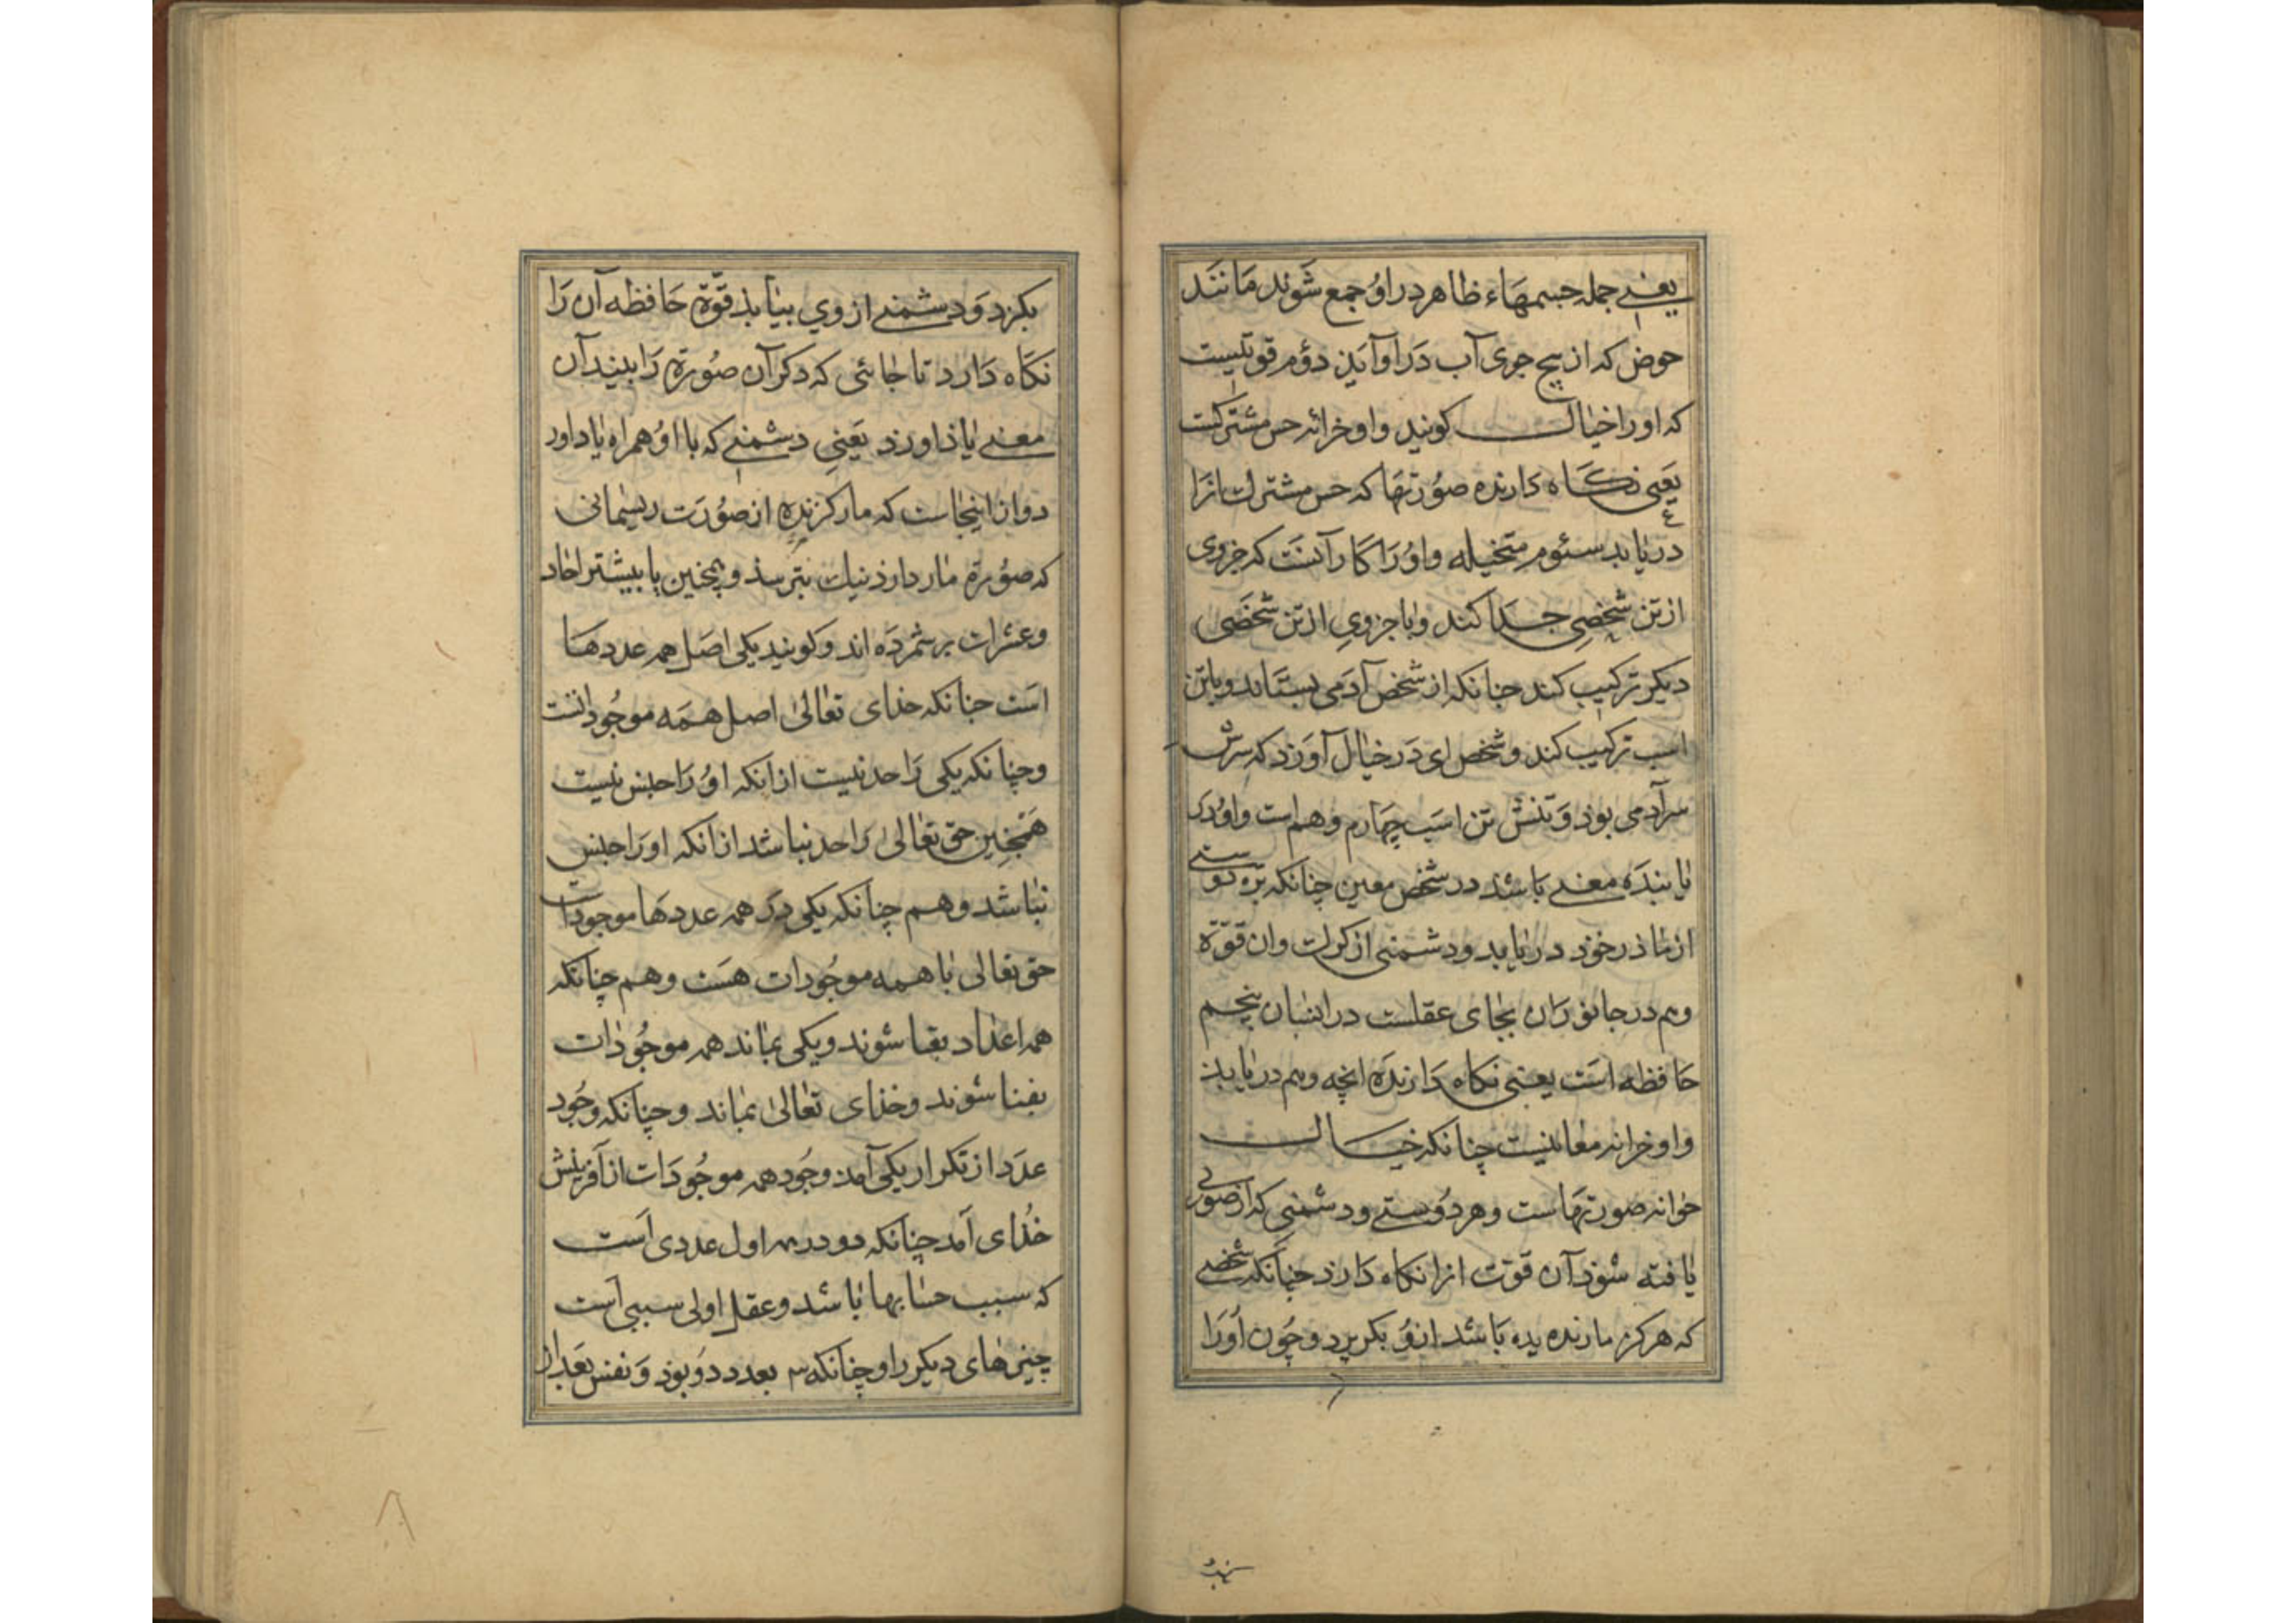 یعنی جمله جسمهاء ظاهر در او جمع شوند مانند
حوض که از پنج جوی آب در او آیذ دوم قوتیست
که او را خیال کویند و او خزانه حس مشترکست
یعنی نکاه دارنده صورتها که حس مشترک انرا
دریابد سئوم متخیله و او را کار آنست که جزوی
از تن شخصی جدا کند و با جزوی از تن شخصی
دیکر ترکیب کند جنانکه از شخص آدمی بستاند و با تن
اسب ترکیب کند و شخص ای در خیال آورد که سرش
سر آدمی بوذ و تنش تن اسب چهارم وهم است و او در
یابنده معنی باشذ در شخص معین چنانکه بره دوستی
از ماذر خوذ دریابد و دشمنی از کرک و ان قوّة
وهم در جانوران بجای عقلست در انسان پنجم
حافظه است یعنی نکاه دارنده انچه وهم دریابذ
و او خزانه معانیست چنانکه خیال
خزانه صورتهاست و هر دوستی و دشمنی که از صورتی
یافته شوذ آن قوّت انرا نکاه دارذ جنانکه شخصی
که هرکز مار ندیده باشد ازو بکریزد و چون او را
بکزد و دشمنی از وی بیابذ قوّة حافظه آن را
نکاه دارد تا جائی که دکر آن صورة را بیند آن
معنی یاذ اورذ یعنی دشمنی که با او همراه یاد اور
د و از اینجاست که مار کزیده از صورت ریسمانی
که صورة مار دارذ نیک بترسذ و همچنین پا بیشتر احاد
و عشرات برشمرده اند و کویند یکی اصل همه عددها
است جنانکه خذای تعالی اصل همه موجوداتست
و چنانکه یکی را حد نیست از انکه او را جنس نیست
همچنین حق تعالی را حد نباشد از آنکه او را جنس
نباشد و هم چنانکه یکی در همه عددها موجودست
حق تعالی با همه موجودات هست و هم چنانکه
همه اعداد بفنا شوند و یکی بماند همه موجودات
بفنا شوند و خذای تعالی بماند و چنانکه وجود
عدد از تکرار یکی آمد وجود همه موجودات از آفرینش
خذای آمد چنانکه دو در مر اول عددی است
که سبب حسابها باشد و عقل اولی سببی است
چیزهای دیکر را و چنانکه ۳ بعدد دو بوذ و نفس بعد از